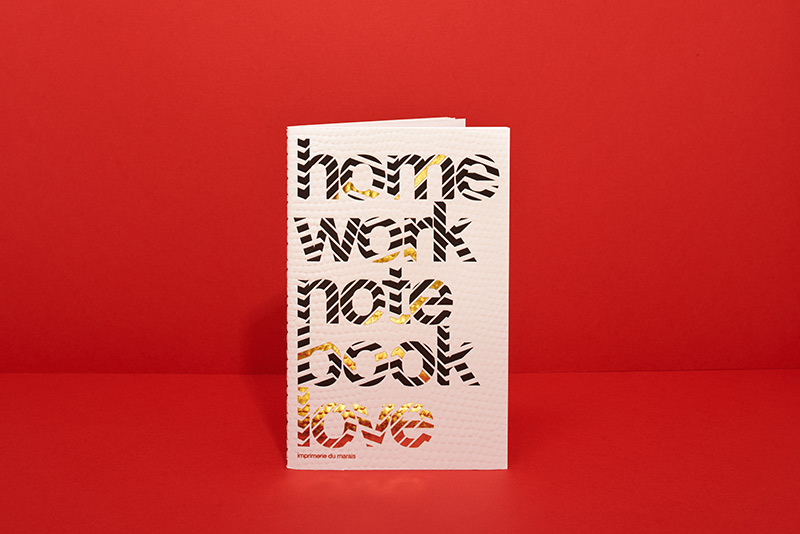 home
work
note
book
love
imprimerie du marais